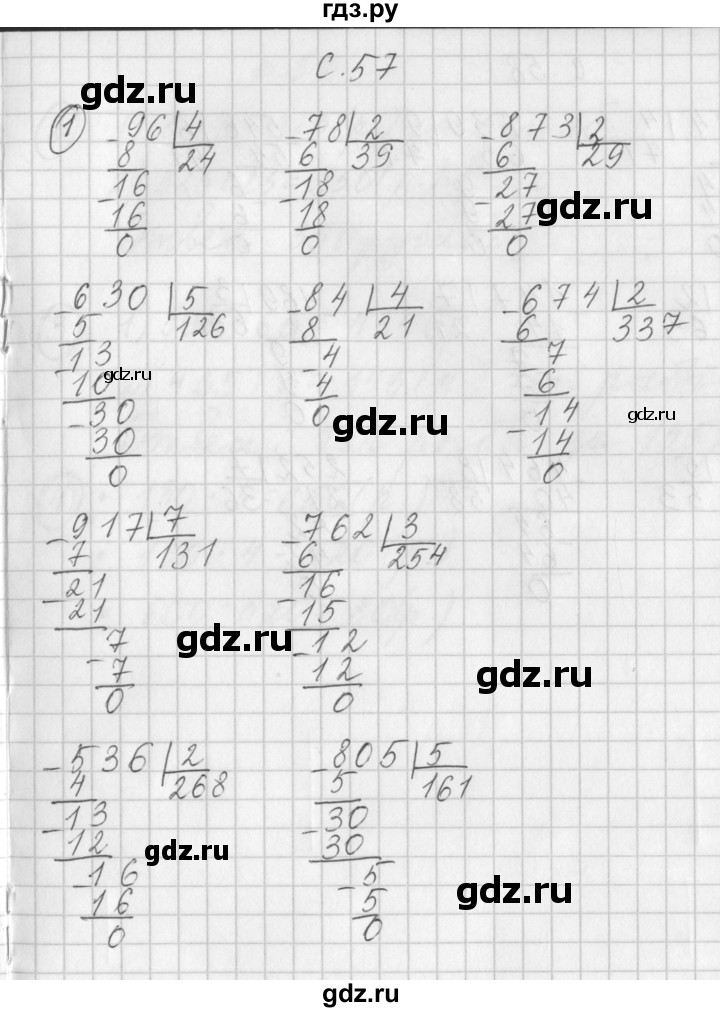 гдз.ру
с. 57
gdz.ru
1
- 96 | 4   - 78 | 2   - 873 | 2
8   24   6   39   6   29
- 16   - 18   - 27
16   18   27
0   0   0
gdz.ru
- 630 | 5   - 84 | 4   - 674 | 2
5   126   8   21   6   337
- 13   - 4   - 7
10   4   6
- 30   0   - 14
30   14
0   0
gdz.ru
gdz.ru
gdz.ru
- 917 | 7   - 762 | 3
7   131   6   254
- 21   - 16
21   15
- 7   - 12
7   12
0   0
gdz.ru
gdz.ru
- 536 | 2   - 805 | 5
4   268   5   161
- 13   - 30
12   30
- 16   - 5
16   5
0   0
gdz.ru
gdz.ru
gdz.ru